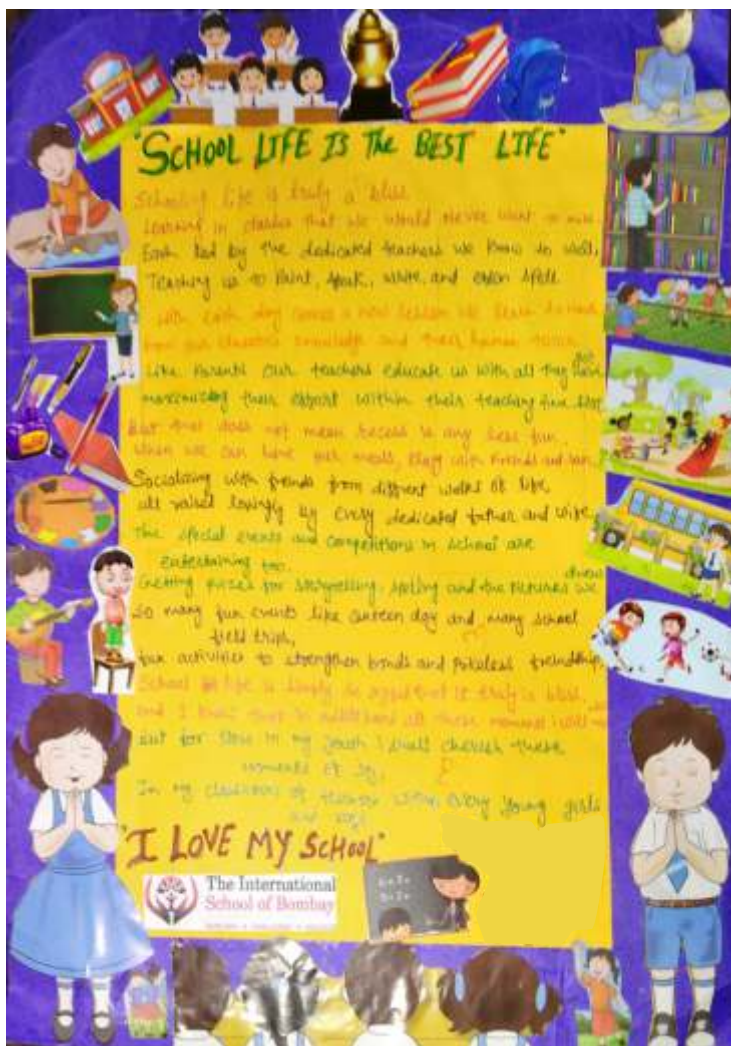 "SCHOOL LIFE IS The BEST LIFE"
Schooling life is truly a bliss
Learning in classes that we would never want to miss.
Each led by the dedicated teachers we know so well,
Teaching us to Paint, speak, write, and even spell
with each day comes a new lesson we learn
knowledge and their
Like Parents our teachers educate us with all they got
maximizing their effort within their teaching
But that does not mean recess is any less fun
When we can have our meals, play with friends and
Socializing with friends from different walks of life,
all raised lovingly by every dedicated father and wife
The special events and competitions in school are
entertaining too.
Getting prizes for storytelling, spelling and the pictures we drew
So many fun events like canteen day and many school
field trips,
fun activities to strengthen bonds and friendship
School life is simply so truly is bliss,
and I know that in all these moments I will
but for now in my youth I shall cherish these
moments of joy,
In my classroom of every young girls
and boys
"I LOVE MY SCHOOL"
The International
School of Bombay